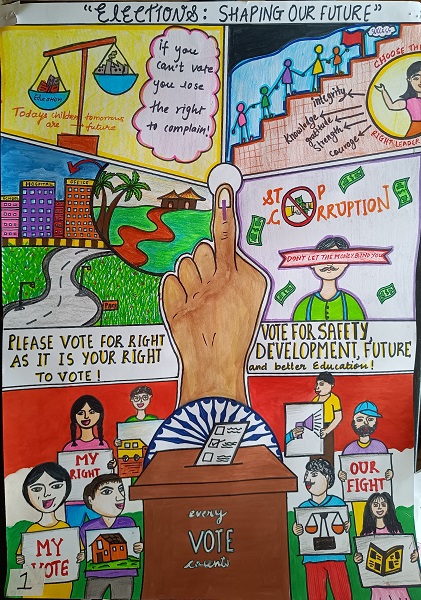 "ELECTIONS: SHAPING OUR FUTURE"
EDUCATION
Todays children tomorrows
are future
If you
can't vote
you lose
the right
to complain!
integrity
Knowledge
gratitude
Strength
courage
CHOOSE THE
RIGHT LEADER
SCHOOL
HOSPITAL
OFFICE
STOP
CORRUPTION
DON'T LET THE MONEY BIND YOU
PLEASE VOTE FOR RIGHT
AS IT IS YOUR RIGHT
TO VOTE!
VOTE FOR SAFETY
DEVELOPMENT, FUTURE
and better Education!
MY
RIGHT
OUR
FIGHT
MY
VOTE
every
VOTE
counts
1